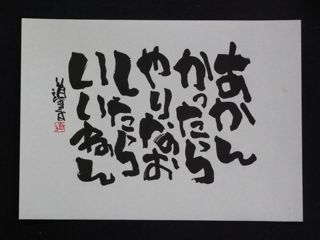 あかん
かったら
やりなお
したら
いいねん